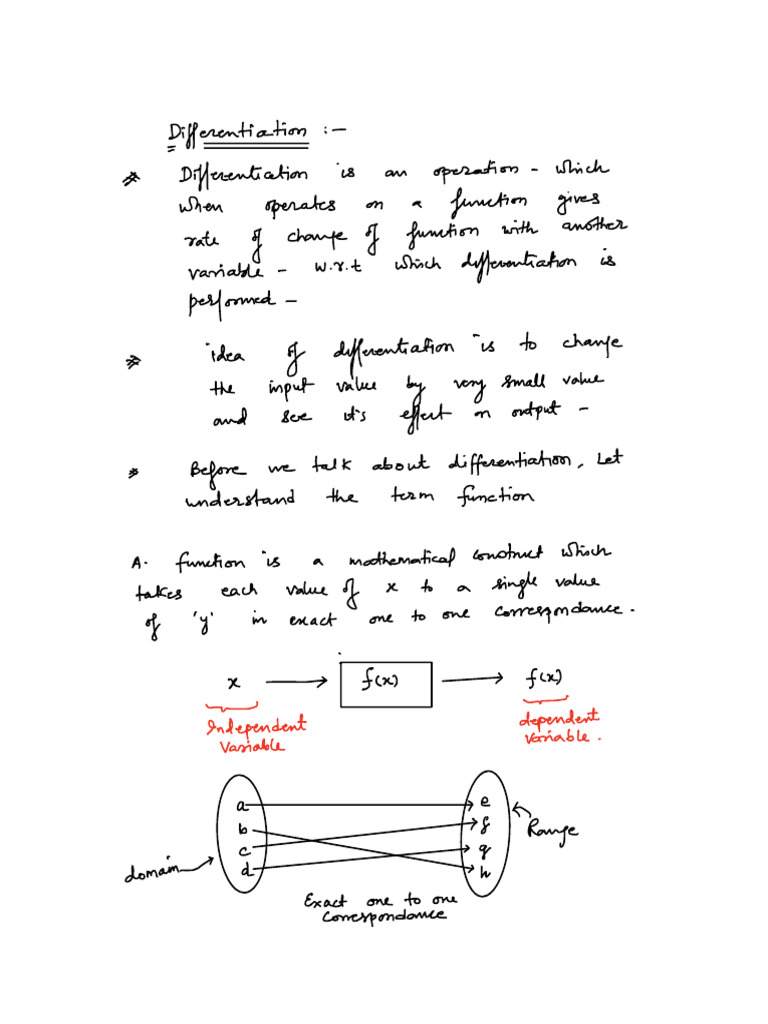 Differentiation :-
* Differentiation is an operation - which
when operates on a function gives
rate of change of function with another
variable - w.r.t which differentiation is
performed -
* idea of differentiation is to change
the input value by very small value
and see it's effect on output -
* Before we talk about differentiation, Let
understand the term function
A. function is a mathematical construct which
takes each value of x to a single value
of 'y' in exact one to one correspondance.
x → f(x) → f(x)
Independent Variable
dependent variable.
a e
b f
c g
d h
domain
Range
Exact one to one
correspondance